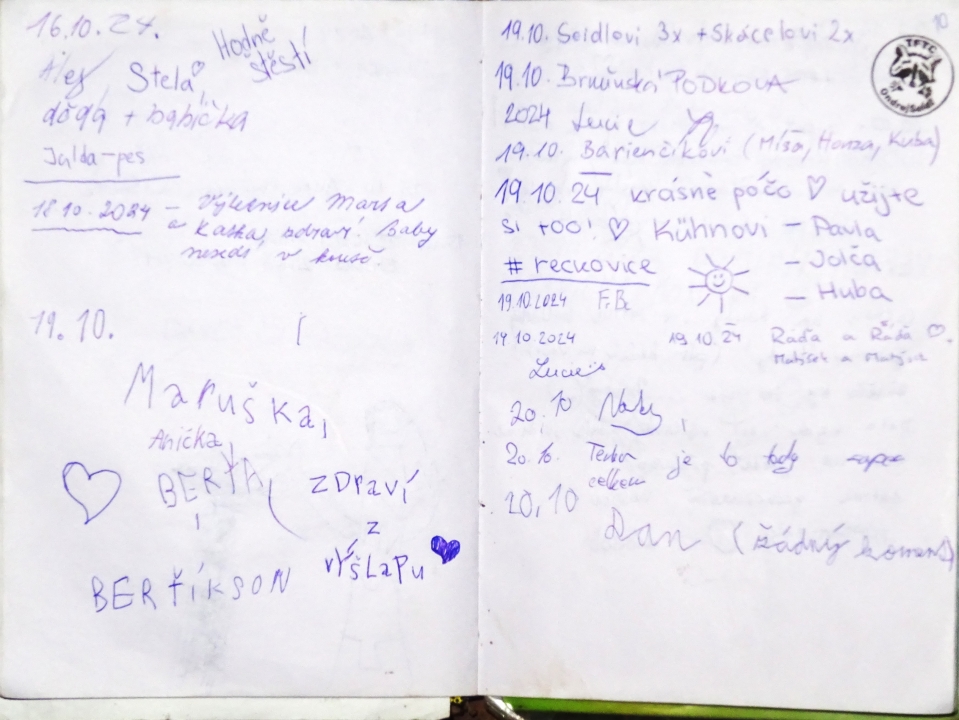 16.10.24.
Hodně
štěstí
Stela,
děda + babička
Julda-pes
18.10.2024 – Výletnice Marťa
a Kaťka, zdraví. Baby
nesedí v koutě.
19. 10.
Maruška,
Anička,
BERŤA,
zDraví
z
výšLapu
BERŤÍKSON
10
19.10. Seidlovi 3x + Skácelovi 2x
TFTC
Ondrej Seidl
19.10. Brněnská PODKOVA
2024 Lucie
19.10. Barienčíkovi (Míša, Honza, Kuba)
19.10.24 krásné póčo ♡ užijte
si too! ♡ Kühnovi – Pavla
– Jolča
– Huba
# reckovice
19.10.2024 F.B.
19.10.2024
19.10.24 Ráďa a Ráďa ♡.
Matýsek a
Lucie
20.10
20.10. je to
celkem
20,10
Dan (žádný koment)